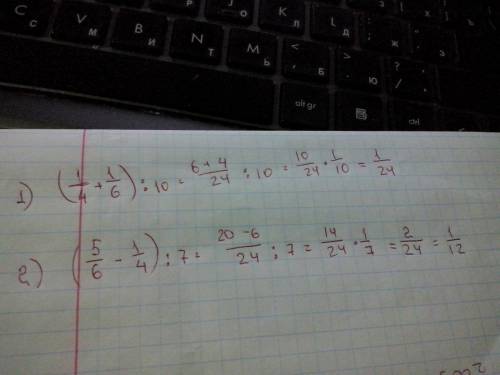 C с
V м
B и
N т
M ь
< , б
> . ю
? / .
K л
L д
: ; ж
alt gr
ctrl
1) (1/4 + 1/6) : 10 = (6+4)/24 : 10 = 10/24 · 1/10 = 1/24
2) (5/6 - 1/4) : 7 = (20-6)/24 : 7 = 14/24 · 1/7 = 2/24 = 1/12